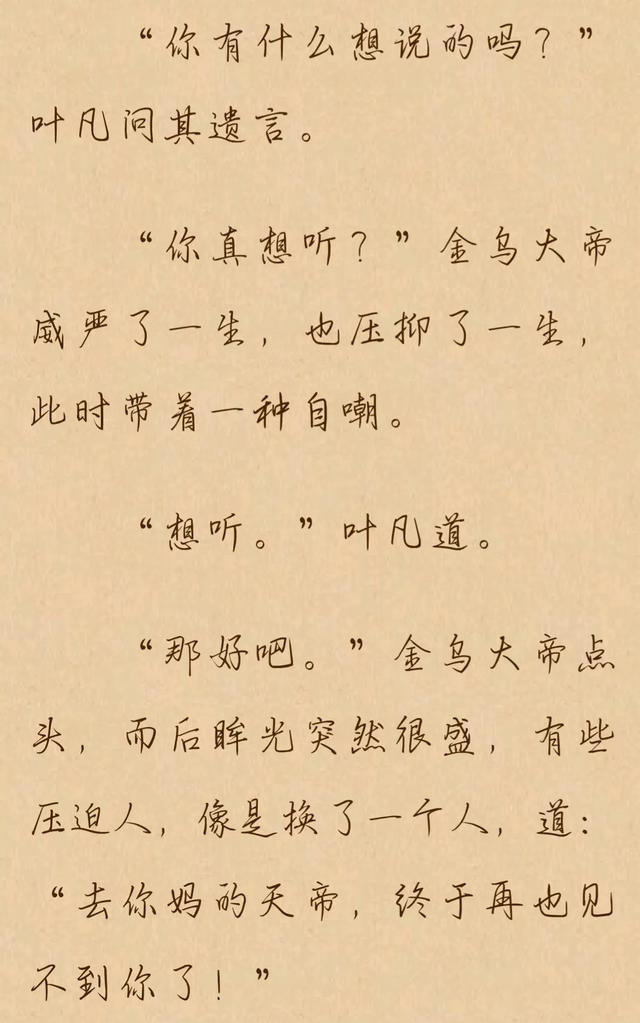 “你有什么想说的吗？”
叶凡问其遗言。
“你真想听？”金乌大帝
威严了一生，也压抑了一生，
此时带着一种自嘲。
“想听。”叶凡道。
“那好吧。”金乌大帝点
头，而后眸光突然很盛，有些
压迫人，像是换了一个人，道：
“去你妈的天帝，终于再也见
不到你了！”